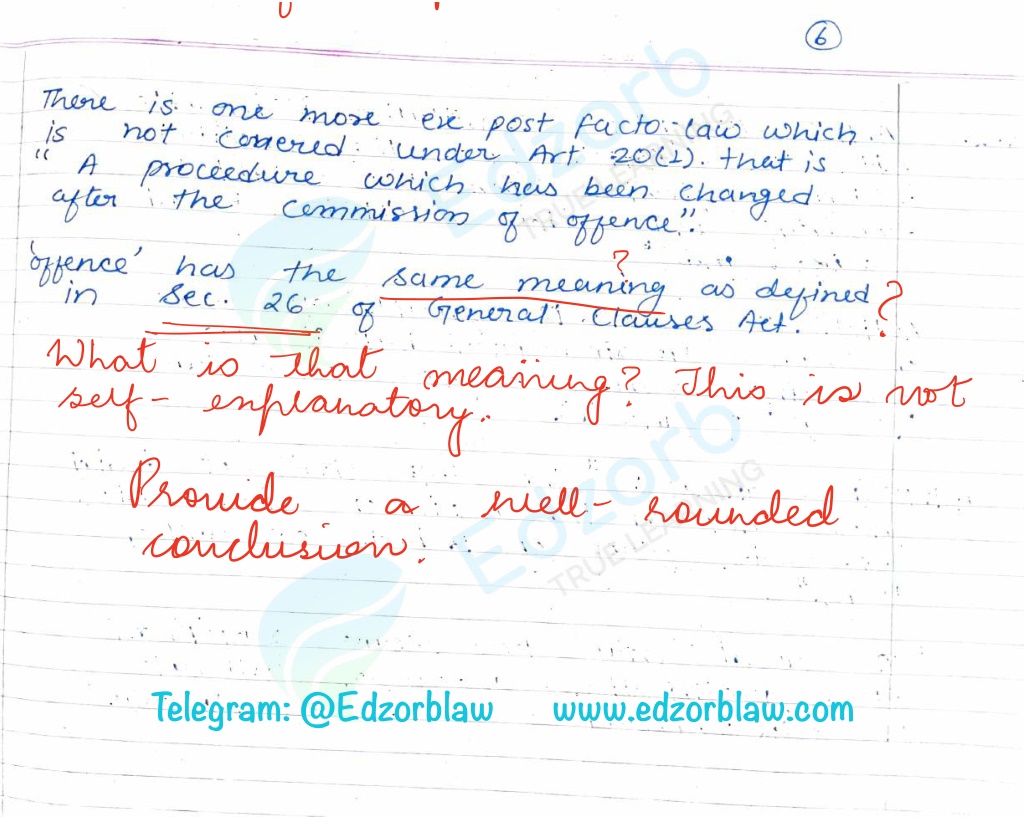 6
There is one more ex post facto law which
is not covered under Art. 20(1). that is
" A proceedure which has been changed
after the commission of offence".
?
'offence' has the same meaning as defined ?
in Sec. 26 of General Clauses Act.
What is that meaning? This is not
self-explanatory.
Provide a well-rounded
conclusion.
Edzorb
TRUE LEARNING
Edzorb
TRUE LEARNING
Telegram: @Edzorblaw www.edzorblaw.com